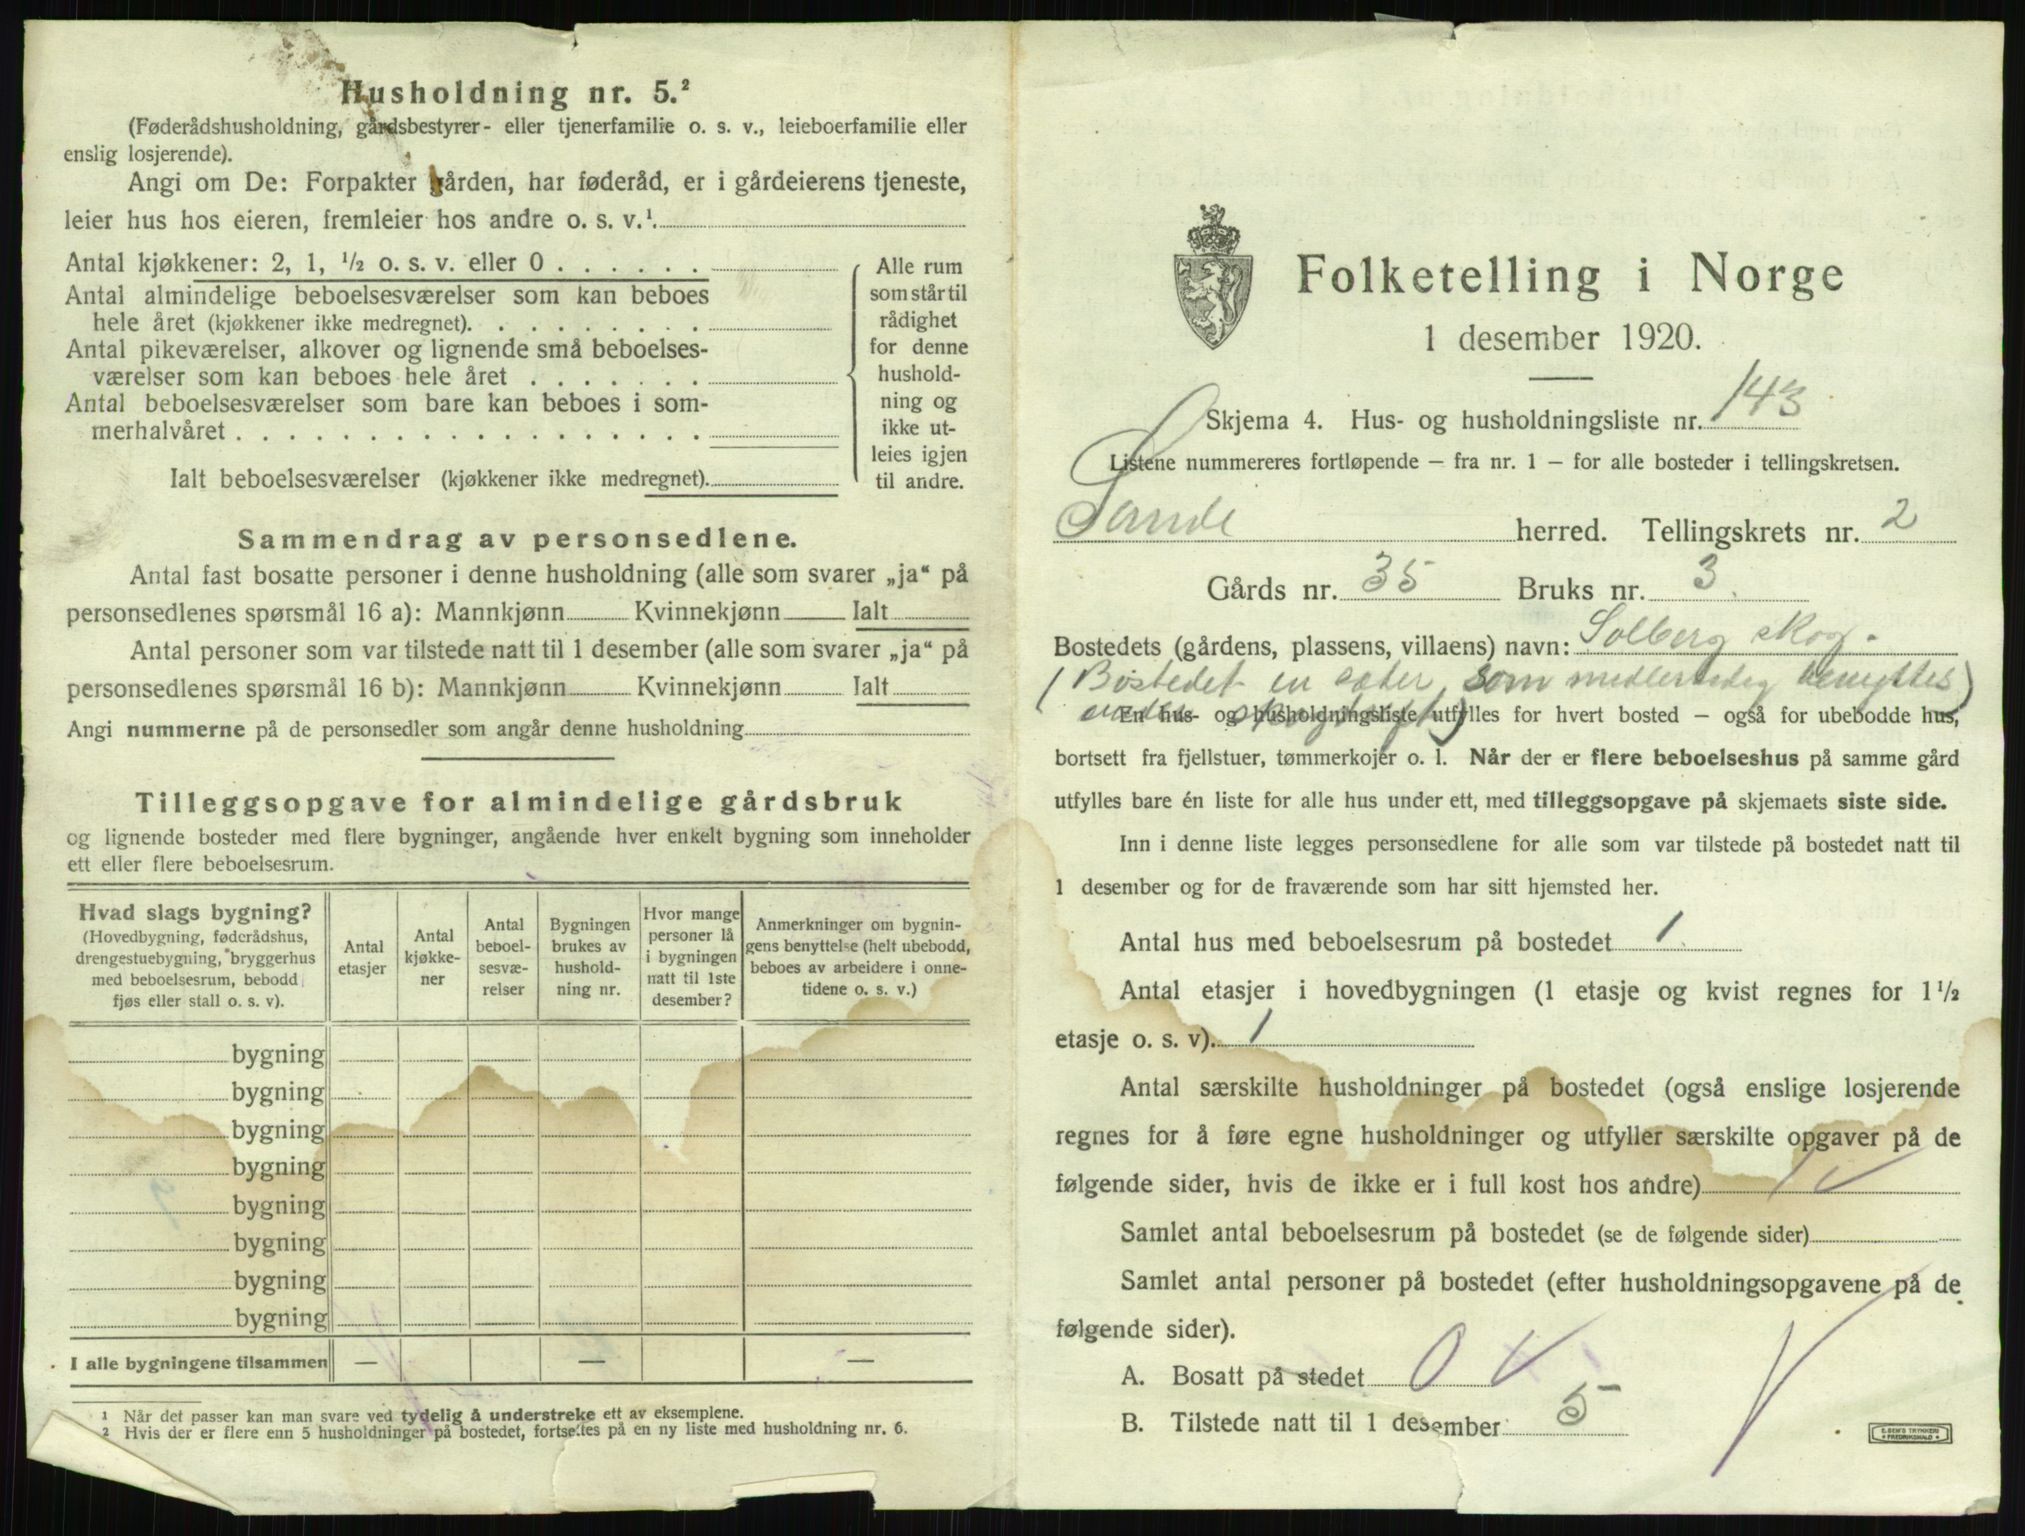 Husholdning nr. 5.²
(Føderådshusholdning, gårdsbestyrer- eller tjenerfamilie o. s. v., leieboerfamilie eller
enslig losjerende).
Angi om De: Forpakter gården, har føderåd, er i gårdeierens tjeneste,
leier hus hos eieren, fremleier hos andre o. s. v.¹
Antal kjøkkener: 2, 1, ½ o. s. v. eller 0
Antal almindelige beboelsesværelser som kan beboes
hele året (kjøkkener ikke medregnet).
Antal pikeværelser, alkover og lignende små beboelses-
værelser som kan beboes hele året
Antal beboelsesværelser som bare kan beboes i som-
merhalvåret
Ialt beboelsesværelser (kjøkkener ikke medregnet).
Alle rum
som står til
rådighet
for denne
hushold-
ning og
ikke ut-
leies igjen
til andre.
Sammendrag av personsedlene.
Antal fast bosatte personer i denne husholdning (alle som svarer „ja“ på
personsedlenes spørsmål 16 a): Mannkjønn Kvinnekjønn Ialt
Antal personer som var tilstede natt til 1 desember (alle som svarer „ja“ på
personsedlenes spørsmål 16 b): Mannkjønn Kvinnekjønn Ialt
Angi nummerne på de personsedler som angår denne husholdning
Tilleggsopgave for almindelige gårdsbruk
og lignende bosteder med flere bygninger, angående hver enkelt bygning som inneholder
ett eller flere beboelsesrum.
Hvad slags bygning?
(Hovedbygning, føderådshus,
drengestuebygning, bryggerhus
med beboelsesrum, bebodd
fjøs eller stall o. s. v).
Antal
etasjer
Antal
kjøkke-
ner
Antal
beboel-
sesvæ-
relser
Bygningen
brukes av
hushold-
ning nr.
Hvor mange
personer lå
i bygningen
natt til 1ste
desember?
Anmerkninger om bygnin-
gens benyttelse (helt ubebodd,
beboes av arbeidere i onne-
tidene o. s. v.)
bygning
bygning
bygning
bygning
bygning
bygning
bygning
bygning
I alle bygningene tilsammen — — —
¹ Når det passer kan man svare ved tydelig å understreke ett av eksemplene.
² Hvis der er flere enn 5 husholdninger på bostedet, fortsettes på en ny liste med husholdning nr. 6.
Folketelling i Norge
1 desember 1920.
Skjema 4. Hus- og husholdningsliste nr. 143
Listene nummereres fortløpende – fra nr. 1 – for alle bosteder i tellingskretsen.
Sande herred. Tellingskrets nr. 2
Gårds nr. 35 Bruks nr. 3
Bostedets (gårdens, plassens, villaens) navn: Solberg skog.
(Bostedet en sæter, som midlertidig benyttes)
under skogdrift)
En hus- og husholdningsliste utfylles for hvert bosted – også for ubebodde hus,
bortsett fra fjellstuer, tømmerkojer o. l. Når der er flere beboelseshus på samme gård
utfylles bare én liste for alle hus under ett, med tilleggsopgave på skjemaets siste side.
Inn i denne liste legges personsedlene for alle som var tilstede på bostedet natt til
1 desember og for de fraværende som har sitt hjemsted her.
Antal hus med beboelsesrum på bostedet 1
Antal etasjer i hovedbygningen (1 etasje og kvist regnes for 1½
etasje o. s. v). 1
Antal særskilte husholdninger på bostedet (også enslige losjerende
regnes for å føre egne husholdninger og utfyller særskilte opgaver på de
følgende sider, hvis de ikke er i full kost hos andre) 1
Samlet antal beboelsesrum på bostedet (se de følgende sider)
Samlet antal personer på bostedet (efter husholdningsopgavene på de
følgende sider).
A. Bosatt på stedet 0
B. Tilstede natt til 1 desember 5
E. SEM'S TRYKKERI
FREDRIKSHALD